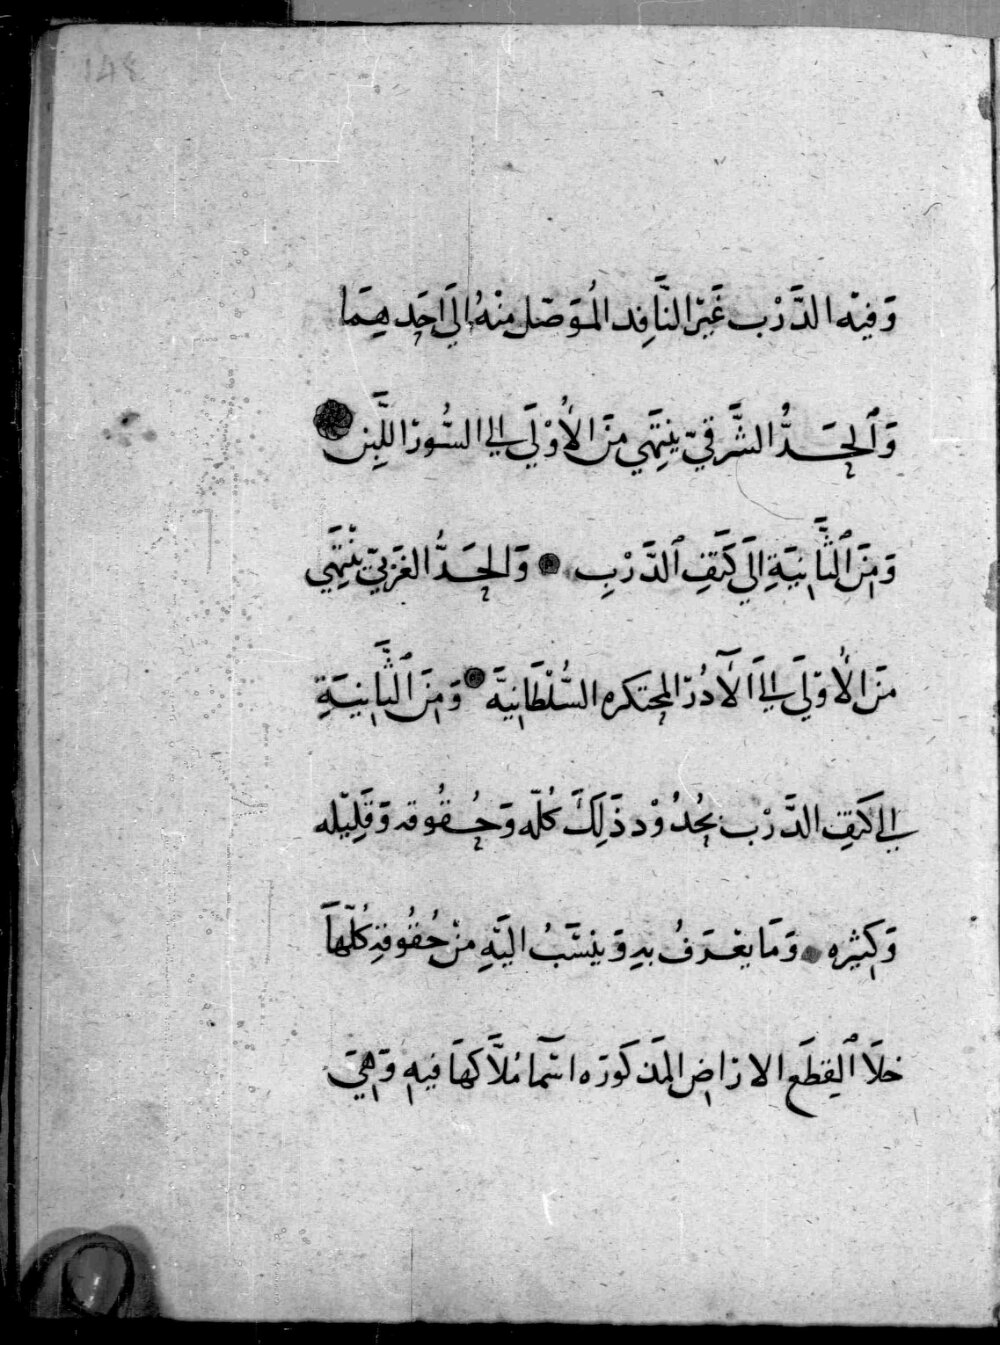 148
وَفِيْه الدَّرْب غَيْر النَّافِد المُوَصّل مِنْهُ اِلَى اَحَدِهِمَا
وَٱلحَدُّ الشَّرقيّ يَنتَهِي مِنَ الأُوْلَى إلى السُّور اللَّبِن
وَمِنَ ٱلثَّانِيَةِ اِلَى كَتِفِ ٱلدَّرْبِ وَالحَدُّ الغَرْبيّ يَنْتَهِي
مِنَ الأُوْلَى إلَى الآدُر المحتكره السُّلْطَانِيَّة وَمِنَ ٱلثَّانِيَةِ
إلى كَتِفِ الدَّرْب بِحُدُوْد ذَلِكَ كُلّه وَحُقُوقه وَقَلِيْله
وَكَثِيْره وَمَا يعْرَفُ بِهِ وَيُنسَبُ اِلَيْهِ مِنْ حُقُوقِهِ كُلّهَا
خلَا ٱلقِطَع الاراضِ المَذكُورَه اسْمَا مُلَّاكهَا فِيهِ وَهِيَ